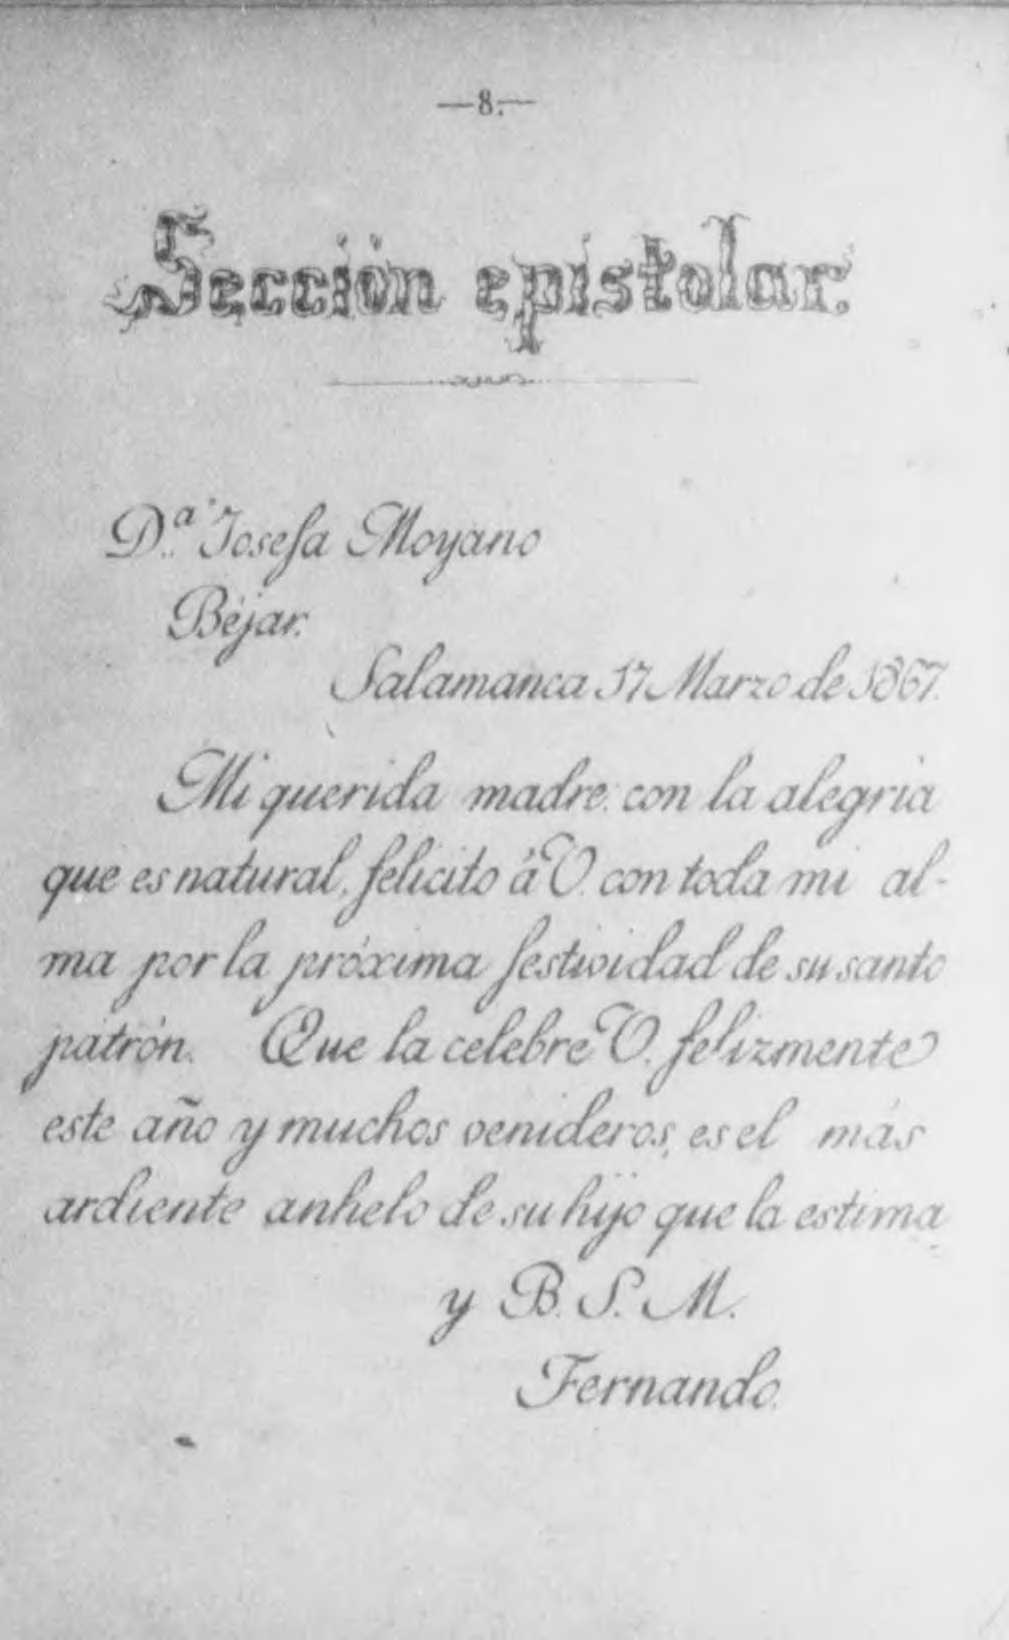 —8.—
Sección epistolar.
D.ª Josefa Moyano
Béjar.
Salamanca 17 Marzo de 1867.
Mi querida madre: con la alegría
que es natural, felicito á V. con toda mi al-
ma por la próxima festividad de su santo
patrón. Que la celebre V. felizmente
este año y muchos venideros, es el más
ardiente anhelo de su hijo que la estima
y B. S. M.
Fernando.